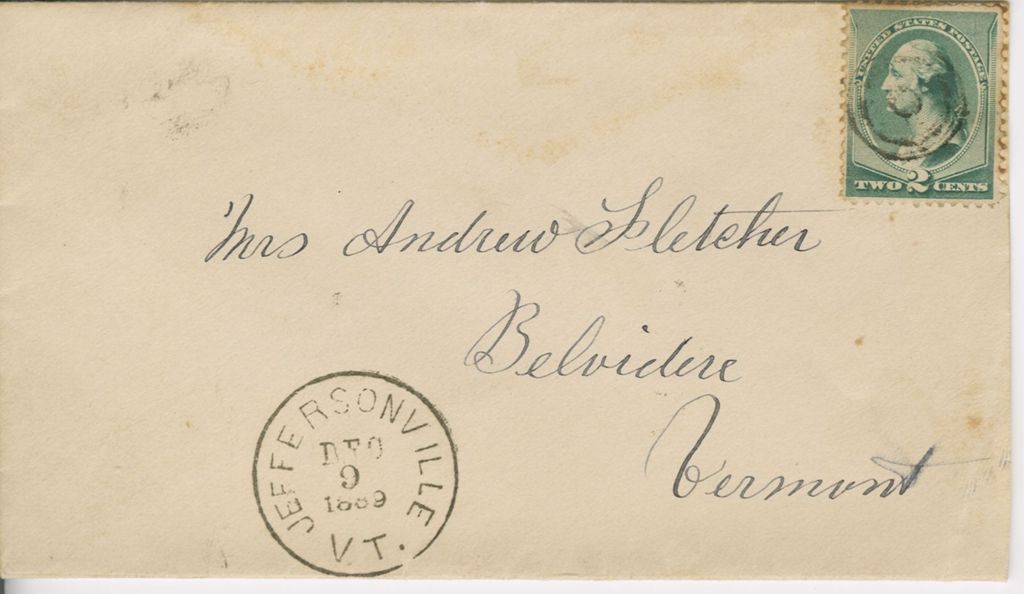 UNITED STATES POSTAGE
TWO 2 CENTS
Mrs Andrew Fletcher
Belvidere
Vermont
JEFFERSONVILLE
DEC
9
1889
VT.